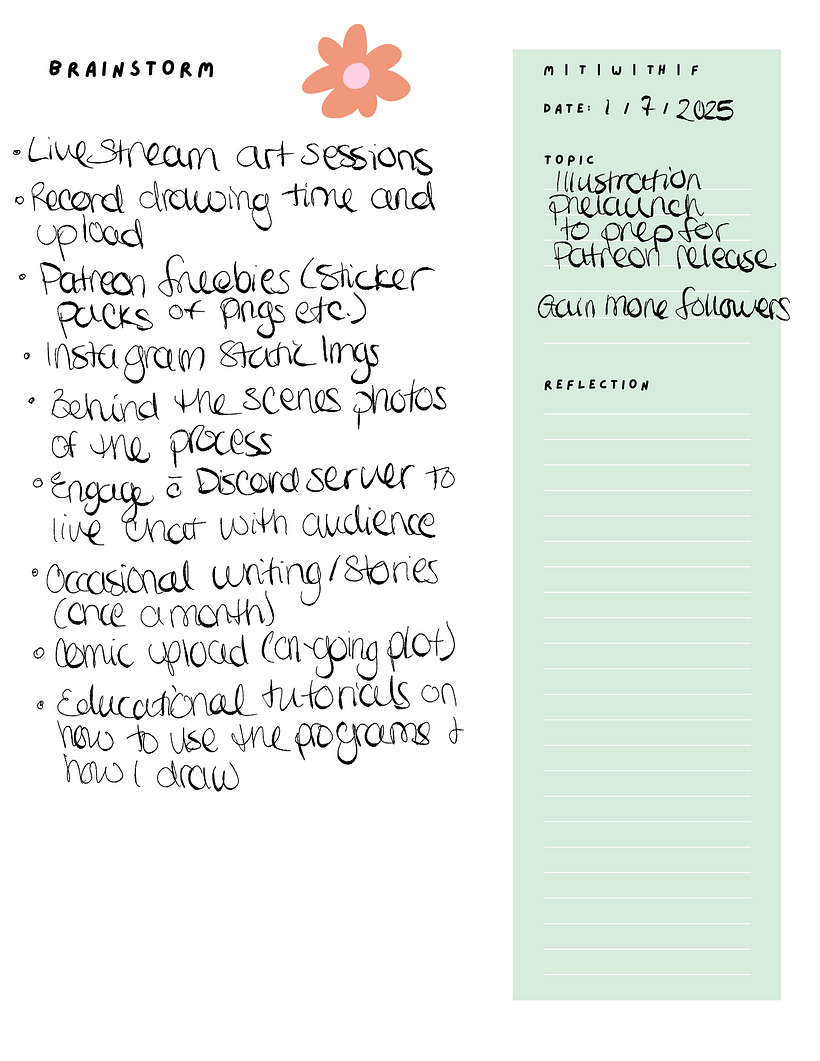 BRAINSTORM
• Livestream art sessions
• Record drawing time and
upload
• Patreon freebies (sticker
packs of pngs etc.)
• Instagram static Imgs
• Behind the scenes photos
of the process
• Engage c̄ Discord server to
live chat with audience
• Occasional writing/stories
(once a month)
• Comic upload (on-going plot)
• Educational tutorials on
how to use the programs &
how I draw
M | T | W | TH | F
DATE: 1 / 7 / 2025
TOPIC
Illustration
prelaunch
to prep for
Patreon release
Gain more followers
REFLECTION